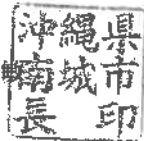 沖縄県
南城市
長印